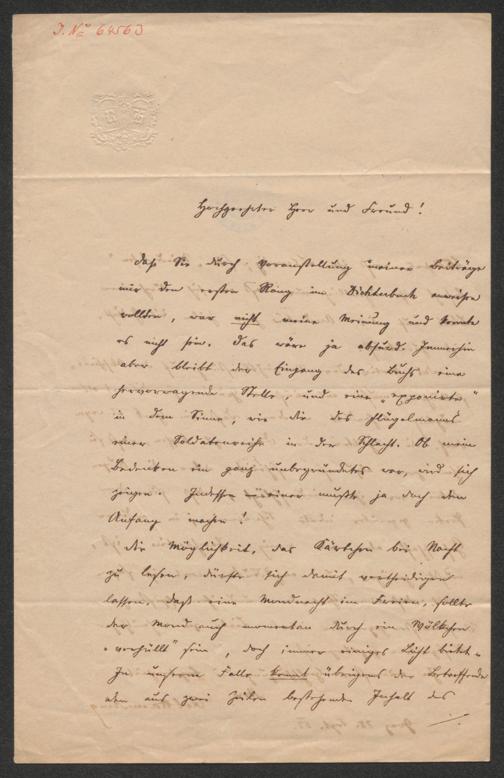 J. No 64563
Hochgeehrter Herr und Freund!
Daß Sie durch Voranstellung meiner Beiträge
mir den ersten Rang im Dichterbuch anweisen
wollten, war nicht meine Meinung und konnte
es nicht sein. Das wäre ja absurd. Immerhin
aber bleibt der Eingang des Buchs eine
hervorragende Stelle, und eine „exponirte“
in dem Sinne, wie die des Flügelmanns
einer Soldatenreihe in der Schlacht. Ob mein
Bedenken ein ganz unbegründetes war, wird sich
zeigen. Indessen einer mußte ja doch den
Anfang machen!
Die Möglichkeit, das Kärtchen bei Nacht
zu lesen, dürfte sich damit vertheidigen
lassen, daß eine Mondnacht im Freien, sollte
der Mond auch momentan durch ein Wölkchen
„verhüllt“ sein, doch immer einiges Licht bietet.
In unserem Falle kennt übrigens der Betreffende
den aus zwei Zeilen bestehenden Inhalt des